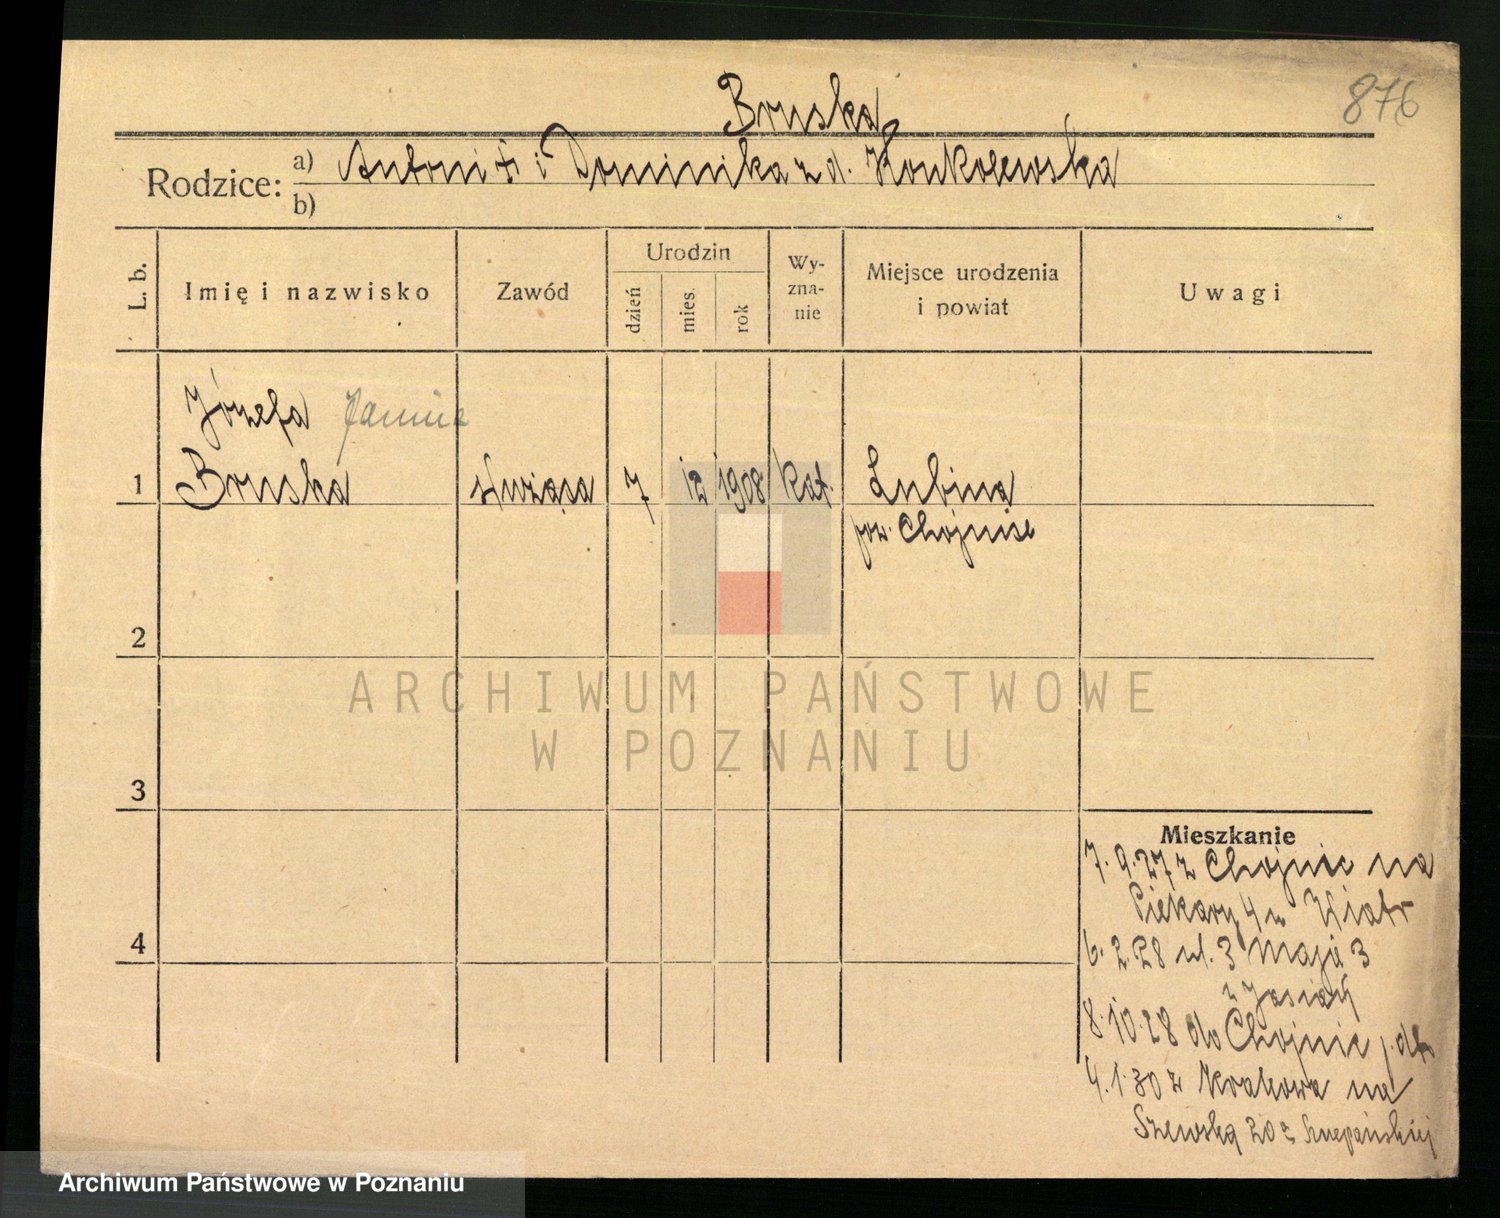 876
Bruska
Rodzice: a) Antoni † i Dominika z d. Konkolewska
b)
L. b. Imię i nazwisko Zawód Urodzin dzień mies. rok Wyzna-nie Miejsce urodzenia i powiat Uwagi
Józefa Janina
1 Bruska służąca 7 12 1908 kat. Lubina
pow. Chojnice
2
ARCHIWUM PAŃSTWOWE
W POZNANIU
3
Mieszkanie
7.9.27 z Chojnic na
Piekary 4 u Wiatr
6.2.28 ul. 3 Maja 3
u
8.10.28 do Chojnic
4
4.1.30 z Krakowa na
Szewską 20 u Szczepańskiej
Archiwum Państwowe w Poznaniu